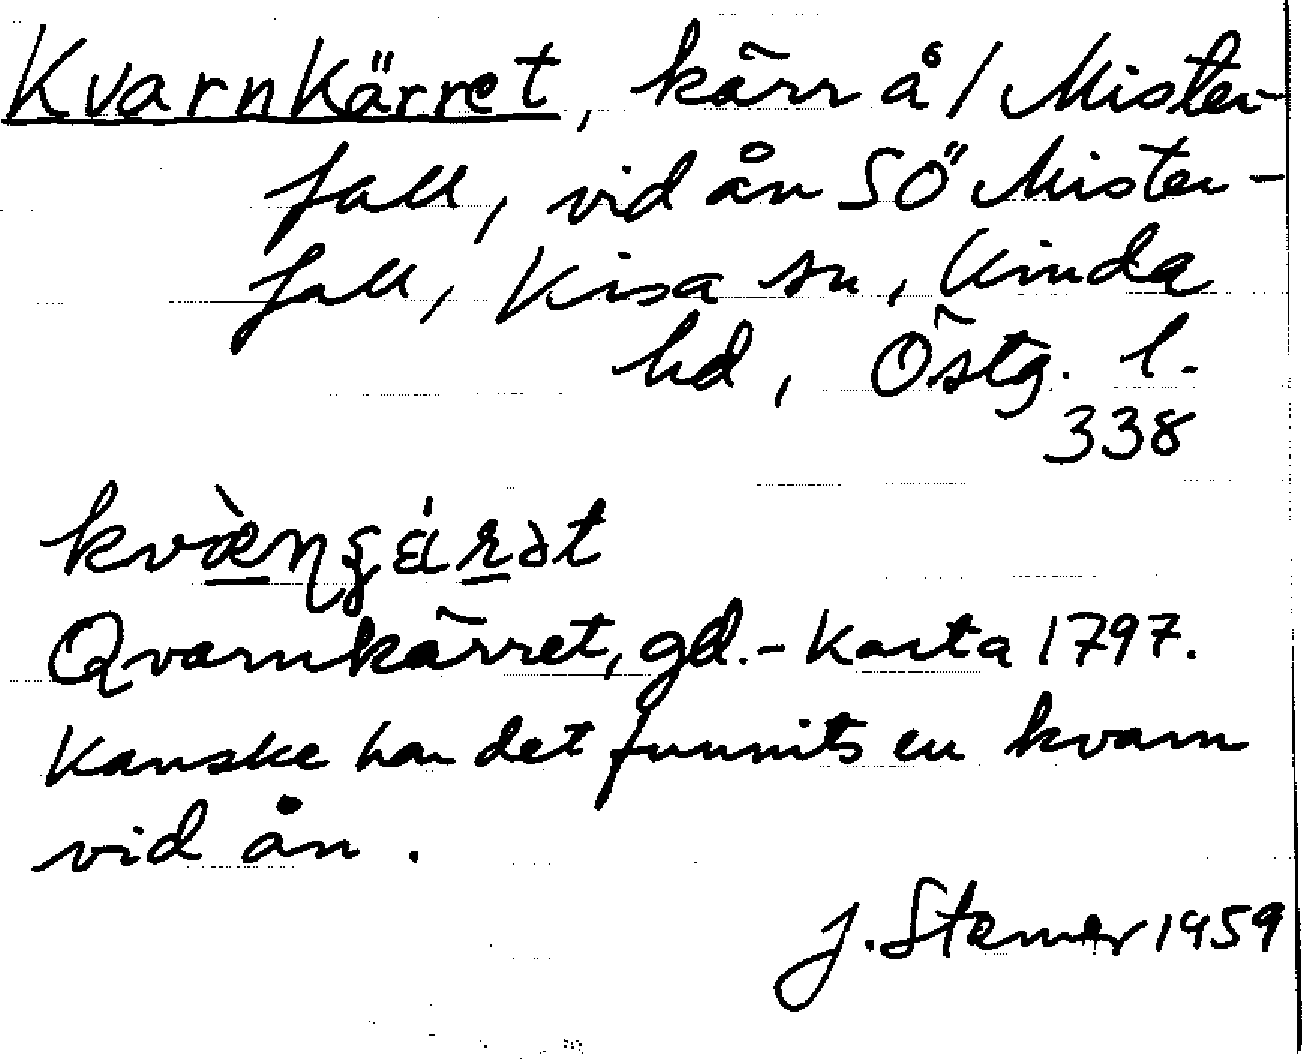 Kvarnkärret, kärr å/ Mister-
fall, vid ån SÖ Mister-
fall, Kisa sn, Kinda
hd, Östg. l.
338
Qvarnkärret, gd. - Karta 1797.
Kanske har det funnits en kvarn
vid ån.
J. Stemer 1959